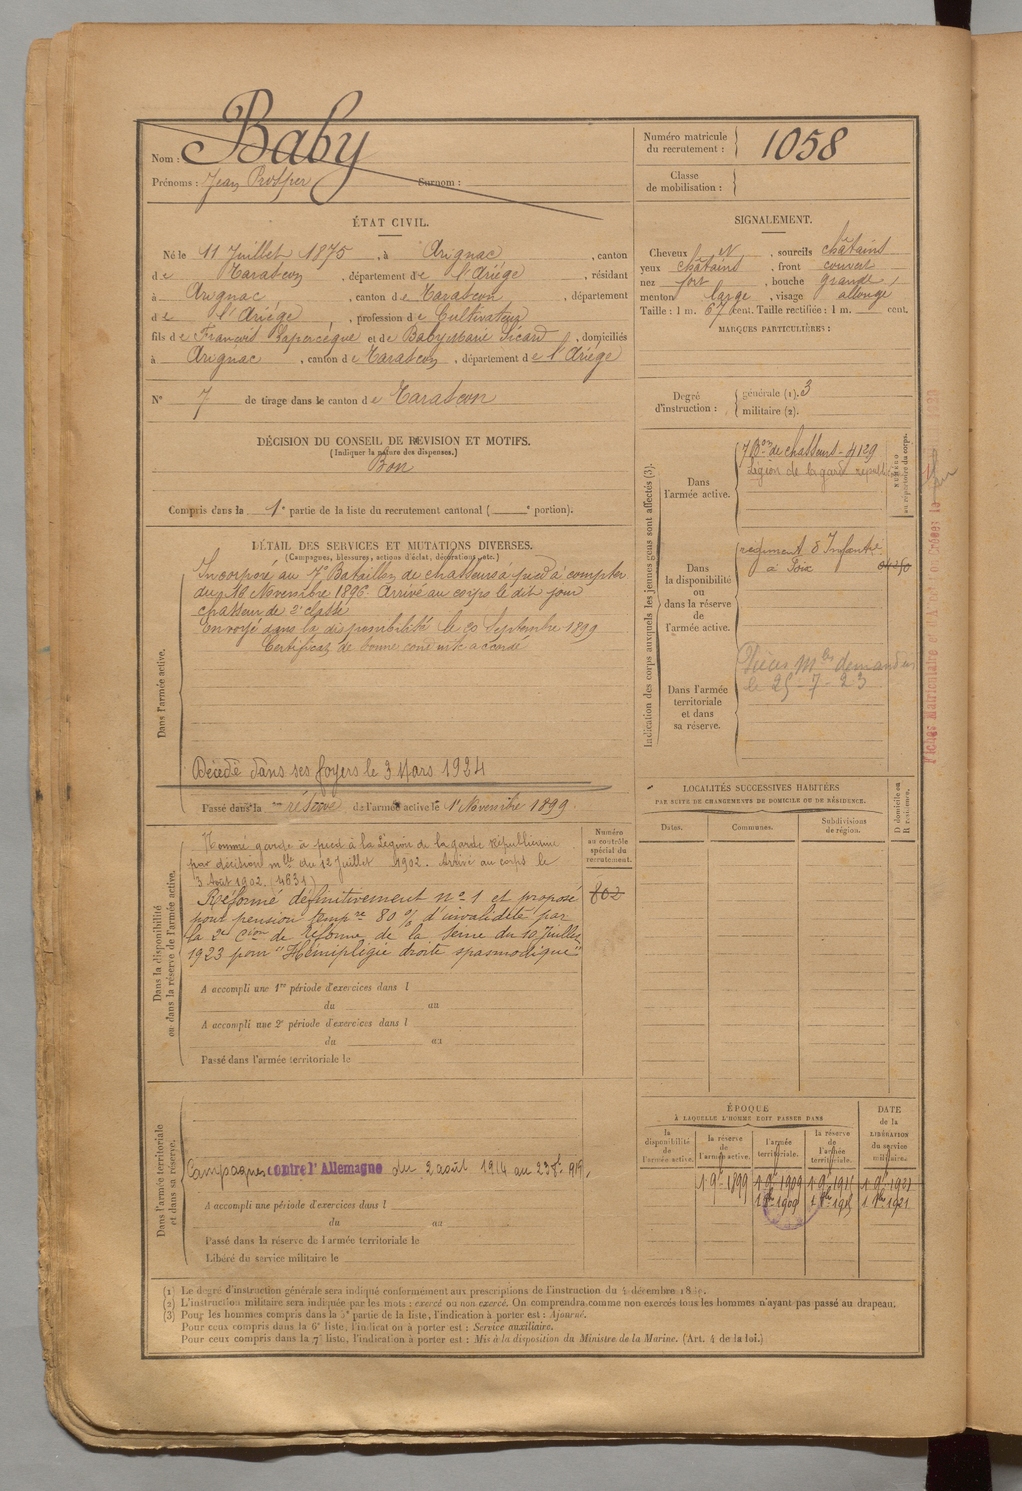 Nom : Baby
Prénoms : Jean Prosper Surnom :
Numéro matricule
du recrutement : 1058
Classe
de mobilisation :
ÉTAT CIVIL.
Né le 11 Juillet 1875, à Arignac, canton
de Tarascon, département de l'Ariège, résidant
à Arignac, canton de Tarascon, département
de l'Ariège, profession de Cultivateur
fils de François Lapercèque et de Baby Marie Sicard, domiciliés
à Arignac, canton de Tarascon, département de l'Ariège
N° 7 de tirage dans le canton de Tarascon
SIGNALEMENT.
Cheveux N, sourcils châtains
yeux châtains, front couvert
nez fort, bouche grande,
menton large, visage allongé
Taille : 1 m. 67 cent. Taille rectifiée : 1 m. cent.
MARQUES PARTICULIÈRES :
Degré
d'instruction :
générale (1). 3
militaire (2).
DÉCISION DU CONSEIL DE REVISION ET MOTIFS.
(Indiquer la nature des dispenses.)
Bon
Compris dans la 1e partie de la liste du recrutement cantonal ( e portion).
DÉTAIL DES SERVICES ET MUTATIONS DIVERSES.
(Campagnes, blessures, actions d'éclat, décorations, etc.)
Dans l'armée active.
Incorporé au 7e Bataillon de chasseurs à pied à compter
du 16 Novembre 1896. Arrivé au corps le dit jour
chasseur de 2e classe
Envoyé dans la disponibilité le 20 Septembre 1899
Certificat de bonne conduite accordé
Décédé dans ses foyers le 3 Mars 1924
Passé dans la réserve de l'armée active le 1er Novembre 1899.
Indication des corps auxquels les jeunes gens sont affectés (3).
Dans
l'armée active.
7 Bon de chasseurs - 4129
Légion de la garde républic
NUMÉRO
au répertoire du corps.
Dans
la disponibilité
ou
dans la réserve
de
l'armée active.
régiment d'Infantrie
à Foix
Dans l'armée
territoriale
et dans
sa réserve.
Pièces Mles demandées
le 25-7-23
Dans la disponibilité
ou dans la réserve de l'armée active.
Nommé garde à pied à la Légion de la garde Républicaine
par décision mlle du 12 juillet 1902. Arrivé au corps le
3 Août 1902. (4631)
Réformé définitivement n° 1 et proposé
pour pension temp re 80% d'invalidité par
la 2e Cion de Réforme de la Seine du 19 Juillet
1923 pour "Hémiplégie droite spasmodique"
Numéro
au contrôle
spécial du
recrutement.
802
A accompli une 1re période d'exercices dans l
du au
A accompli une 2e période d'exercices dans l
du au
Passé dans l'armée territoriale le
LOCALITÉS SUCCESSIVES HABITÉES
PAR SUITE DE CHANGEMENTS DE DOMICILE OU DE RÉSIDENCE.
D domicile ou
R résidence.
Dates. Communes. Subdivisions
de région.
Dans l'armée territoriale
et dans sa réserve.
Campagnes contre l'Allemagne du 2 août 1914 au
A accompli une période d'exercices dans l
du au
Passé dans la réserve de l'armée territoriale le
Libéré du service militaire le
ÉPOQUE
À LAQUELLE L'HOMME DOIT PASSER DANS
DATE
de la
LIBÉRATION
du service
militaire.
la
disponibilité
de
l'armée active.
la réserve
de
l'armée active.
l'armée
territoriale.
la réserve
de
l'armée
territoriale.
1 9bre 1899 1 9bre 1909 1 9bre 1915 1 9bre 1921
1 8bre 1909 1 8bre 1915 1 8bre 1921
(1) Le degré d'instruction générale sera indiqué conformément aux prescriptions de l'instruction du 4 décembre
(2) L'instruction militaire sera indiquée par les mots : exercé ou non exercé. On comprendra comme non exercés tous les hommes n'ayant pas passé au drapeau.
(3) Pour les hommes compris dans la 5e partie de la liste, l'indication à porter est : Ajourné.
Pour ceux compris dans la 6e liste, l'indication à porter est : Service auxiliaire.
Pour ceux compris dans la 7e liste, l'indication à porter est : Mis à la disposition du Ministre de la Marine. (Art. 4 de la loi.)